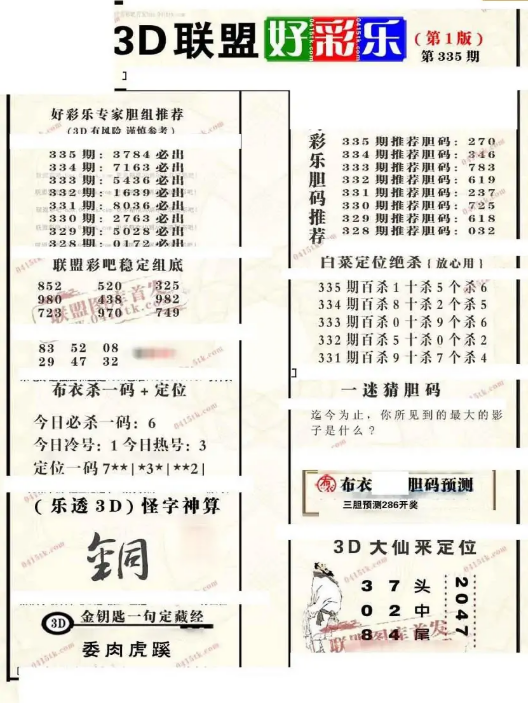 3D联盟 好彩乐
(第1版)
第335期
好彩乐专家胆组推荐
(3D有风险 谨慎参考)
335期: 3784必出
334期: 7163必出
333期: 5436必出
332期: 1639必出
331期: 8036必出
330期: 2763必出
329期: 5028必出
328期: 0172必出
联盟彩吧稳定组底
852 520 325
980 438 982
723 970 749
83 52 08
29 47 32
布衣杀一码+定位
今日必杀一码: 6
今日冷号: 1 今日热号: 3
定位一码 7**|*3*|**2|
(乐透3D)怪字神算
銅
3D 金钥匙一句定藏经
委肉虎蹊
彩乐胆码推荐
335期推荐胆码: 270
334期推荐胆码: 346
333期推荐胆码: 783
332期推荐胆码: 619
331期推荐胆码: 237
330期推荐胆码: 725
329期推荐胆码: 618
328期推荐胆码: 032
白菜定位绝杀{放心用}
335期百杀1十杀5个杀6
334期百杀8十杀2个杀5
333期百杀0十杀9个杀6
332期百杀5十杀0个杀2
331期百杀9十杀7个杀4
一迷猜胆码
迄今为止,你所见到的最大的影
子是什么?
布衣 胆码预测
三胆预测286开奖
3D大仙来定位
3 7 头
0 2 中
8 4 尾
2047
联盟图库首发
0415tk.com